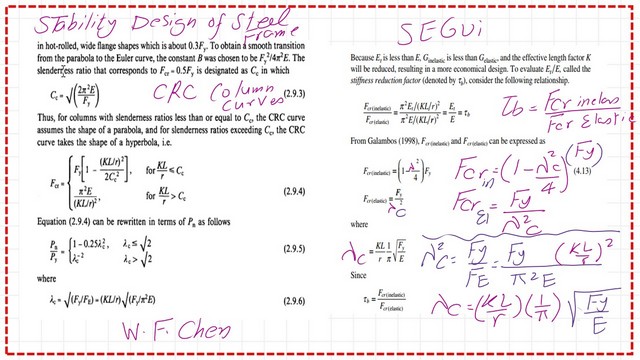 Stability Design of Steel
Frame
in hot-rolled, wide flange shapes which is about 0.3Fy. To obtain a smooth transition
from the parabola to the Euler curve, the constant B was chosen to be Fy²/4π²E. The
slenderness ratio that corresponds to Fcr = 0.5Fy is designated as Cc in which
Cc = √(2π²E/Fy) (2.9.3)
CRC Column
Curves
Thus, for columns with slenderness ratios less than or equal to Cc, the CRC curve
assumes the shape of a parabola, and for slenderness ratios exceeding Cc, the CRC
curve takes the shape of a hyperbola, i.e.
Fcr = { Fy[1 − (KL/r)²/2Cc²], for KL/r ≤ Cc
π²E/(KL/r)², for KL/r > Cc (2.9.4)
Equation (2.9.4) can be rewritten in terms of Pn as follows
Pn/Py = { 1 − 0.25λc², λc ≤ √2
λc⁻², λc > √2 (2.9.5)
where
λc = √(Fy/FE) = (KL/r)√(Fy/π²E) (2.9.6)
W.F. Chen
SEGUi
Because Et is less than E, Ginelastic is less than Gelastic, and the effective length factor K
will be reduced, resulting in a more economical design. To evaluate Et/E, called the
stiffness reduction factor (denoted by τb), consider the following relationship.
Fcr(inelastic)/Fcr(elastic) = π²Et/(KL/r)² / π²E/(KL/r)² = Et/E = τb
τb = Fcr inelas/Fcr Elastic
From Galambos (1998), Fcr(inelastic) and Fcr(elastic) can be expressed as
Fcr(inelastic) = (1 − λ²/4)Fy (4.13)
Fcr in = (1 − λc²/4)(Fy)
Fcr(elastic) = Fy/λc²
Fcr El = Fy/λ²c
where
λc = KL/r 1/π √Fy/E
λ²c = Fy/FE = Fy/π²E (KL/r)²
Since
τb = Fcr(inelastic)/Fcr(elastic)
λc = (KL/r)(1/π)√Fy/E